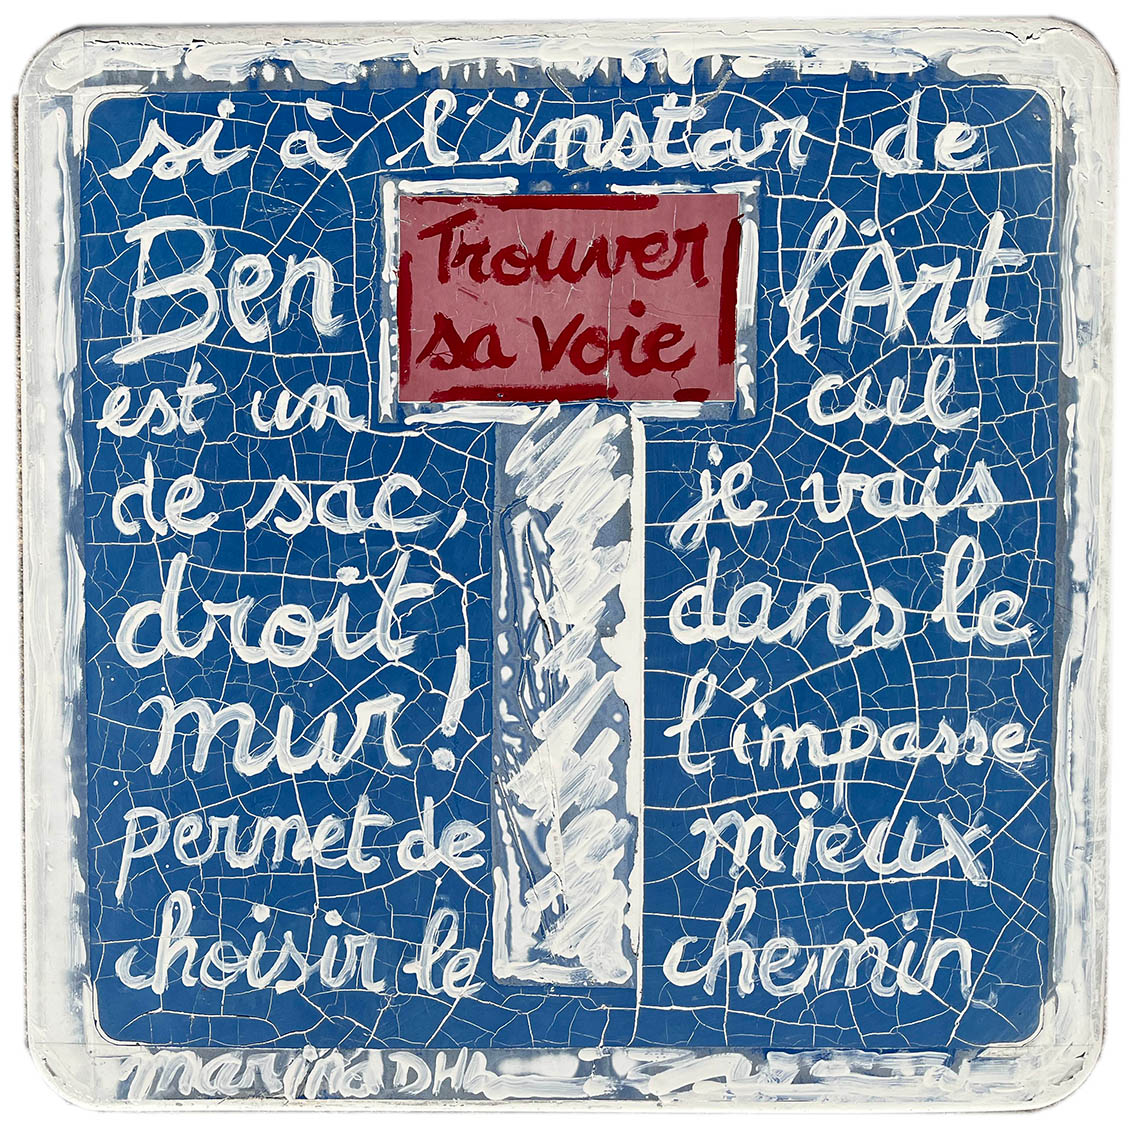 si à l'instar de
Ben Trouver sa voie l'Art
est un cul
de sac, je vais
droit dans le
mur! l'impasse
permet de mieux
choisir le chemin
marina DHh